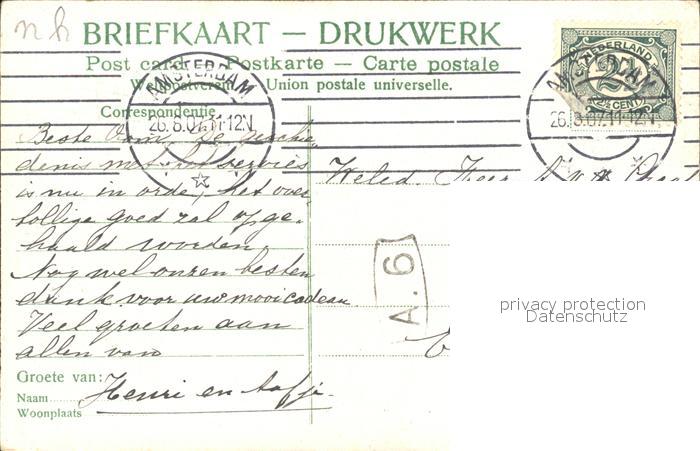 n h
BRIEFKAART — DRUKWERK
Post card — Postkarte — Carte postale
Weltpostverein. Union postale universelle.
AMSTERDAM
26.8.07.11-12N
NEDERLAND
2½
2½ CENT
AMSTERDAM
26.8.07.11-12N
Correspondentie
Beste Oom, De geschie-
denis met het servies
is nu in orde, het over-
tollige goed zal opge-
haald worden.
Nog wel onzen besten
dank voor uw mooi cadeau
Veel groeten aan
allen van
Groete van: Henri en
Naam
Woonplaats
Weled. Heer
A.6
privacy protection
Datenschutz